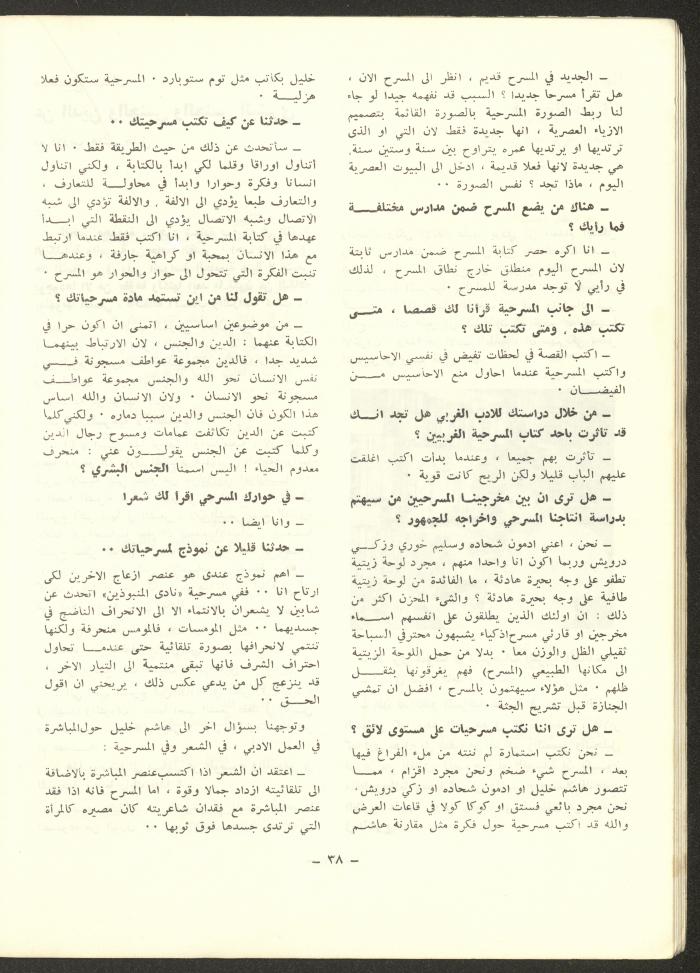 ـ الجديد في المسرح قديم ، انظر الى المسرح الان ،
هل تقرأ مسرحا جديدا ؟ السبب قد نفهمه جيدا لو جاء
لنا ربط الصورة المسرحية بالصورة القائمة بتصميم
الازياء العصرية ، انها جديدة فقط لان التي او الذي
ترتديها او يرتديها عمره يتراوح بين سنة وستين سنة.
هي جديدة لانها فعلا قديمة ، ادخل الى البيوت العصرية
اليوم ، ماذا تجد ؟ نفس الصورة ٠٠
ـ هناك من يضع المسرح ضمن مدارس مختلفـــة
فما رأيك ؟
ـ انا اكره حصر كتابة المسرح ضمن مدارس ثابتة
لان المسرح اليوم منطلق خارج نطاق المسرح ، لذلك
في رأيي لا توجد مدرسة للمسرح ٠
ـ الى جانب المسرحية قرأنا لك قصصا ، متـــى
تكتب هذه ، ومتى تكتب تلك ؟
ـ اكتب القصة في لحظات تفيض في نفسي الاحاسيس
واكتب المسرحية عندما احاول منع الاحاسيس مـــن
الفيضـــان ٠
ـ من خلال دراستك للادب الغربي هل تجد انـــك
قد تأثرت باحد كتاب المسرحية الغربيين ؟
ـ تأثرت بهم جميعا ، وعندما بدأت اكتب اغلقت
عليهم الباب قليلا ولكن الريح كانت قوية ٠
ـ هل ترى ان بين مخرجينـا المسرحيين من سيهتم
بدراسة انتاجنا المسرحي واخراجه للجمهور ؟
ـ نحن ، اعني ادمون شحاده وسليم خوري وزكـــي
درويش وربما اكون انا واحدا منهم ، مجرد لوحة زيتية
تطفو على وجه بحيرة هادئة ، ما الفائدة من لوحة زيتية
طافية على وجه بحيرة هادئة ؟ والشيء المحزن اكثر من
ذلك : ان اولئك الذين يطلقون على انفسهم اســـماء
مخرجين او قارئي مسرح اذكياء يشبهون محترفي السباحة
ثقيلي الظل والوزن معا ٠ بدلا من حمل اللوحة الزيتية
الى مكانها الطبيعي (المسرح) فهم يغرقونها بثقـــل
ظلهم ٠ مثل هؤلاء سيهتمون بالمسرح ، افضل ان تمشي
الجنازة قبل تشريح الجثة ٠
ـ هل ترى اننا نكتب مسرحيات على مستوى لائق ؟
ـ نحن نكتب استمارة لم ننته من ملء الفراغ فيها
بعد ، المسرح شيء ضخم ونحن مجرد اقزام ، ممـــا
تتصور هاشم خليل او ادمون شحاده او زكي درويش.
نحن مجرد بائعي فستق او كوكا كولا في قاعات العرض
والله قد اكتب مسرحية حول فكرة مثل مقارنة هاشـم
خليل بكاتب مثل توم ستوبارد ٠ المسرحية ستكون فعلا
هزليـــة ٠
ـ حدثنا عن كيف تكتب مسرحيتك ٠٠
ـ سأتحدث عن ذلك من حيث الطريقة فقط ٠ انا لا
أتناول اوراقا وقلما لكي ابدأ بالكتابة ، ولكني اتناول
انسانا وفكرة وحوارا وابدأ في محاولـــة للتعارف ،
والتعارف طبعا يؤدي الى الالفة ، والالفة تؤدي الى شبه
الاتصال وشبه الاتصال يؤدي الى النقطة التي ابـــدأ
عهدها في كتابة المسرحية ، انا اكتب فقط عندما ارتبط
مع هذا الانسان بمحبة او كراهية جارفة ، وعندهـــا
تنبت الفكرة التي تتحول الى حوار والحوار هو المسرح ٠
ـ هل تقول لنا من اين تستمد مادة مسرحياتك ؟
ـ من موضوعين اساسيين ، اتمنى ان اكون حرا في
الكتابة عنهما : الدين والجنس ، لان الارتباط بينهمـا
شديد جدا ، فالدين مجموعة عواطف مسجونة فـــي
نفس الانسان نحو الله والجنس مجموعة عواطـــف
مسجونة نحو الانسان ٠ ولان الانسان والله اساس
هذا الكون فان الجنس والدين سببا دماره ٠ ولكني كلما
كتبت عن الدين تكاثفت عمامات ومسوح رجال الدين
وكلما كتبت عن الجنس يقولـــون عني : منحرف
معدوم الحياء ! اليس اسمنا الجنس البشري ؟
ـ في حوارك المسرحي اقرأ لك شعرا
ـ وانا ايضا ٠٠
ـ حدثنا قليلا عن نموذج لمسرحياتك ٠٠
ـ اهم نموذج عندي هو عنصر ازعاج الاخرين لكي
ارتاح انا ٠٠ ففي مسرحية «نادي المنبوذين» اتحدث عن
شابين لا يشعران بالانتماء الا الى الانحراف الناضج في
جسديهما ٠٠ مثل المومسات ، فالمومس منحرفة ولكنها
تنتمي لانحرافها بصورة تلقائية حتى عندمـــا تحاول
احتراف الشرف فانها تبقى منتمية الى التيار الاخر ،
قد ينزعج كل من يدعي عكس ذلك ، يريحني ان اقول
الحـــق ٠٠
وتوجهنا بسؤال اخر الى هاشم خليل حول المباشرة
في العمل الادبي ، في الشعر وفي المسرحية :
ـ اعتقد ان الشعر اذا اكتسب عنصر المباشرة بالاضافة
الى تلقائيته ازداد جمالا وقوة ، اما المسرح فانه اذا فقد
عنصر المباشرة مع فقدان شاعريته كان مصيره كالمرأة
التي ترتدي جسدها فوق ثوبها ٠٠
ـ ٣٨ ـ